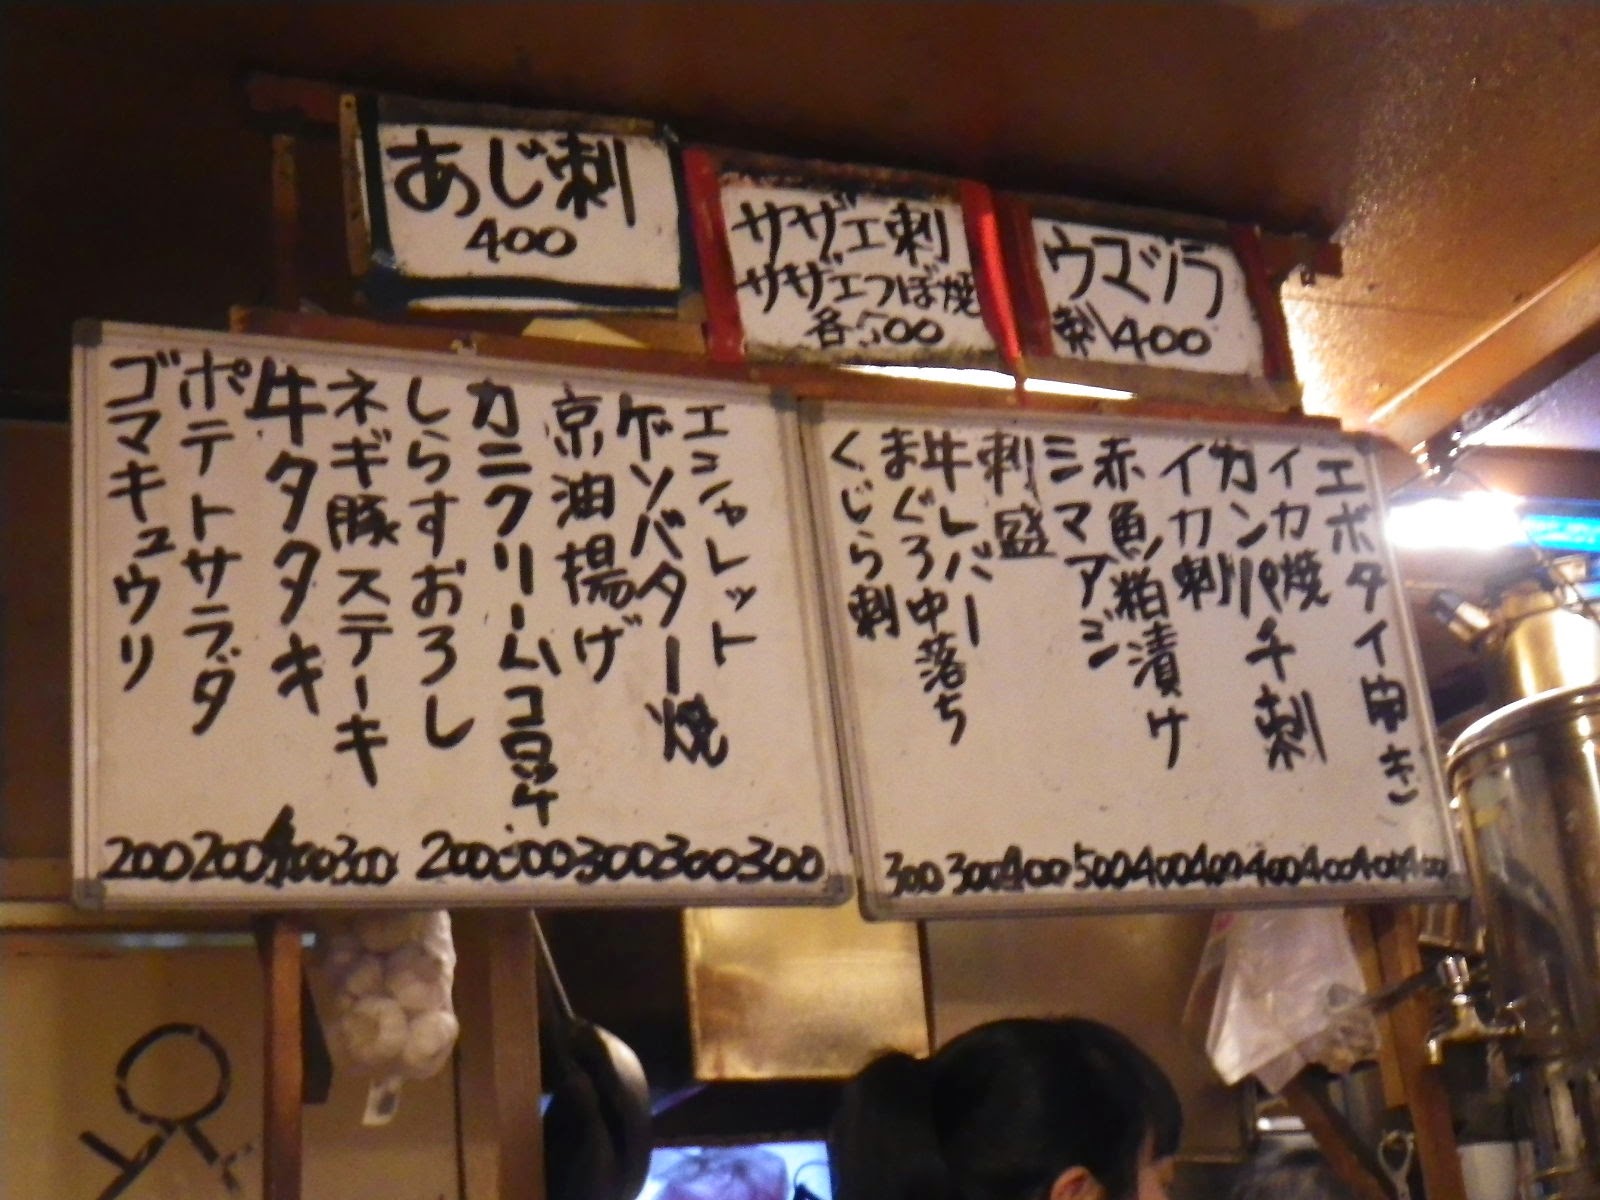 あじ刺
400
サザエ刺
サザエつぼ焼
各500
ウマヅラ
刺400
エシャレット
ゲソバター焼
京油揚げ
カニクリームコロッケ
しらすおろし
ネギ豚ステーキ
牛タタキ
ポテトサラダ
ゴマキュウリ
200 200 400 300 200 300 300 300 300
エボタイ(開き)
イカ焼
カンパチ刺
イカ刺
赤魚粕漬け
シマアジ
刺盛
牛レバー
まぐろ中落ち
くじら刺
300 300 400 500 400 400 400 400 400 400